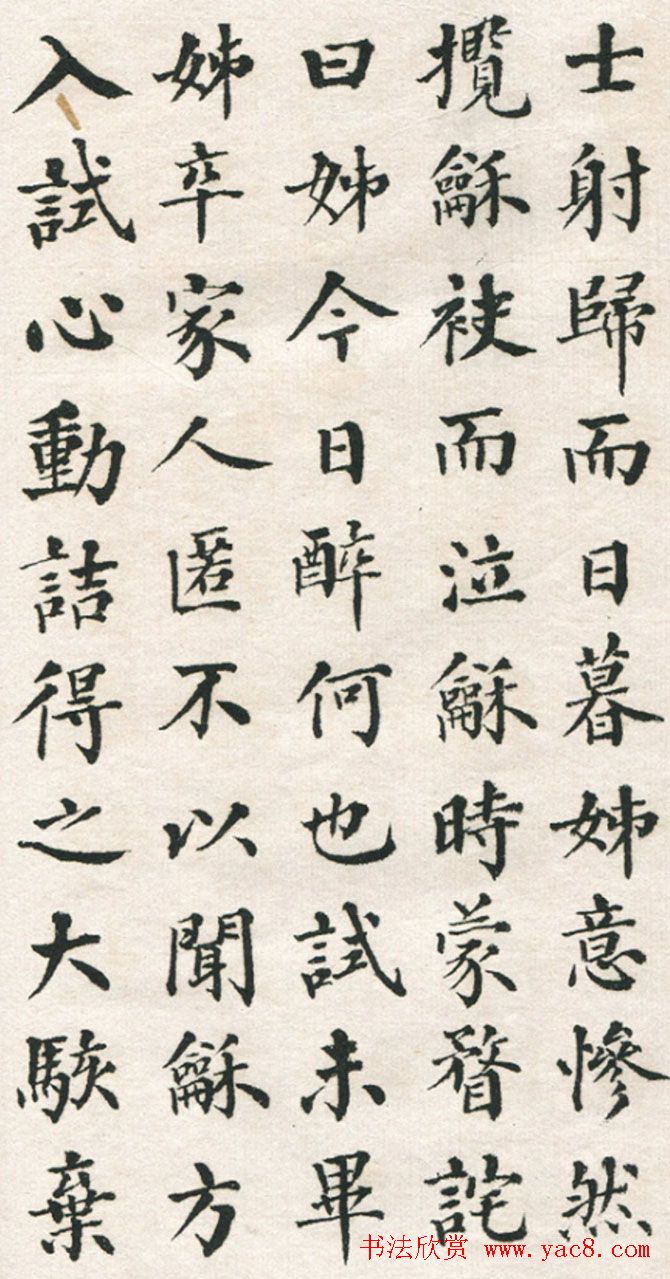 士射歸而日暮姊意慘然
攬龢袂而泣龢時蒙瞀詫
曰姊今日醉何也試未畢
姊卒家人匿不以聞龢方
入試心動詰得之大駭棄
书法欣赏 www.yac8.com